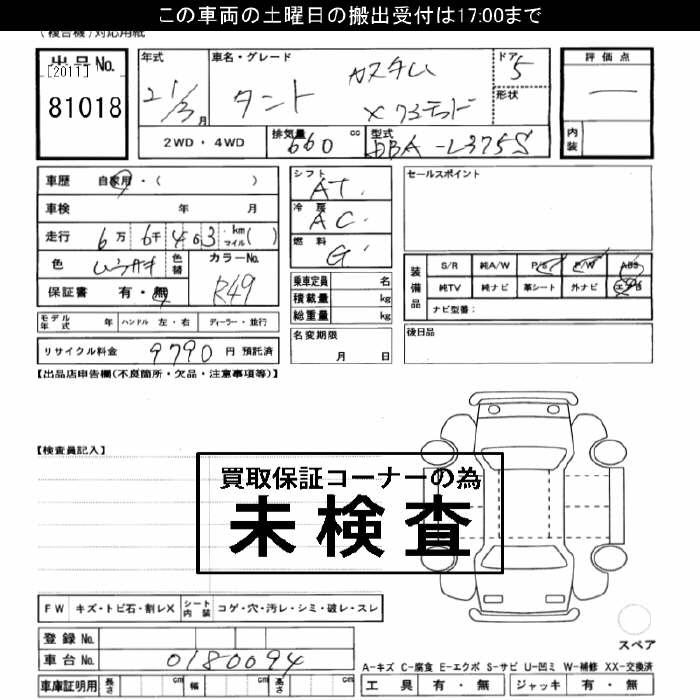 この車両の土曜日の搬出受付は17:00まで
(複合機)対応用紙
出品No.
[2011]
81018
年式
21/3月
車名・グレード
タント カスタム
ドア
5
形状
2WD・4WD
排気量
660 cc
型式
DBA-L375S
評価点
―
内装
車歴 自家用・( )
車検 年 月
走行 6万6千403 kmマイル( )
色
色替
カラーNo.
R49
保証書 有・無
シフト
AT
冷房
AC
燃料
G
乗車定員 名
積載量 kg
総重量 kg
セールスポイント
装備品
S/R 純A/W P/S P/W ABS
純TV 純ナビ 革シート 外ナビ エアB
ナビ型番:
モデル年式 年 ハンドル 左・右 ディーラー・並行
名変期限
月 日
後日品
リサイクル料金 9790 円 預託済
【出品店申告欄(不良箇所・欠品・注意事項等)】
【検査員記入】
買取保証コーナーの為
未検査
FW キズ・トビ石・割レX シート内装 コゲ・穴・汚レ・シミ・破レ・スレ
登録No.
車台No. 0180094
スペア
A-キズ C-腐食 E-エクボ S-サビ U-凹ミ W-補修 XX-交換済
車庫証明用 長さ cm 幅 cm 高さ cm
工具 有・無 ジャッキ 有・無